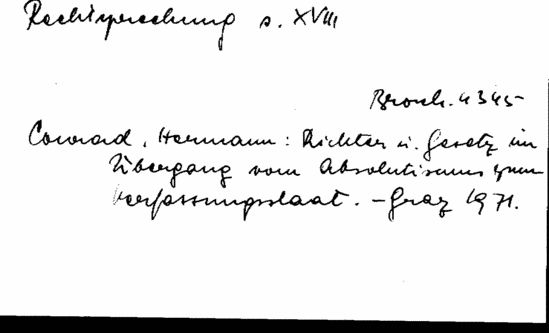 Rechtsprechung s. XVIII
Brosch. 4345
Conrad, Hermann: Richter u. Gesetz im
Übergang vom Absolutismus zum
Verfassungsstaat. - Graz 1971.